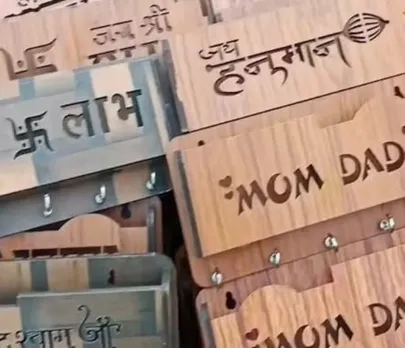 जय श्री
जय
हनुमान
卐 लाभ
MOM DAD
MOM DA